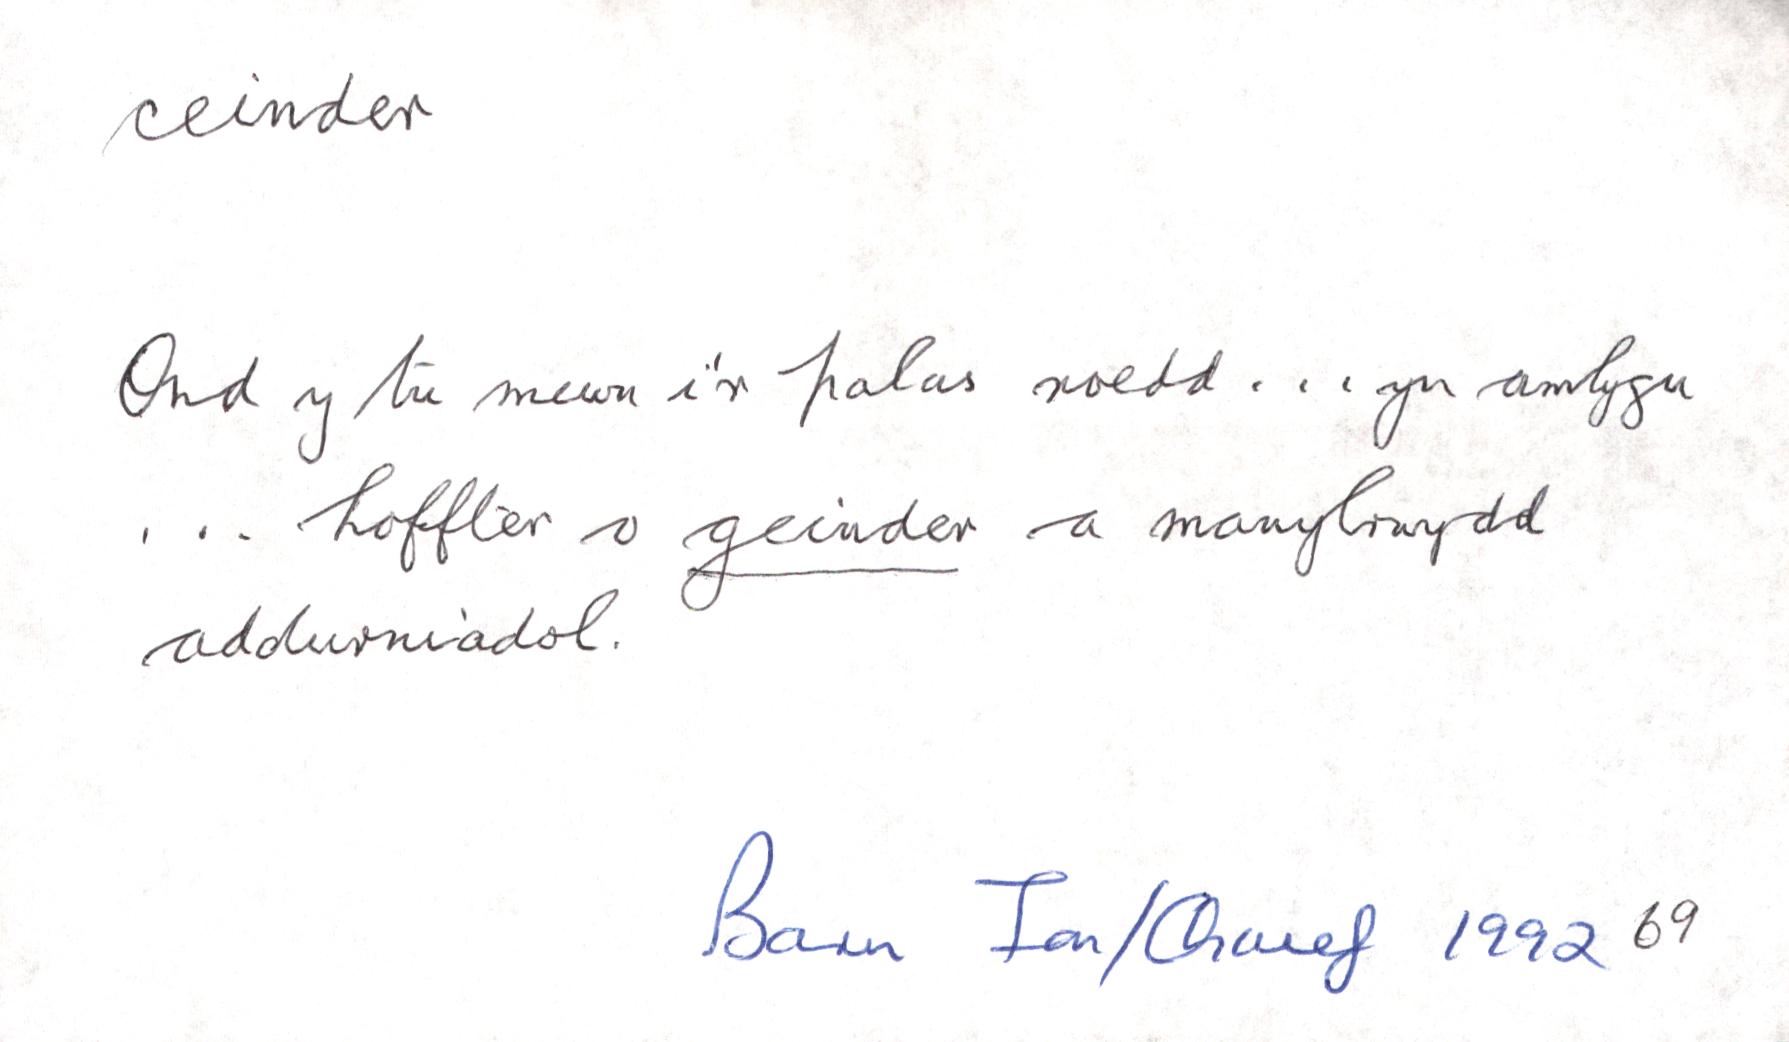 ceinder
Ond y tu mewn i'r palas roedd . . . yn amlygu
. . . hoffter o geinder a manylrwydd
addurniadol.
Barn Ion/Chwef 1992 69